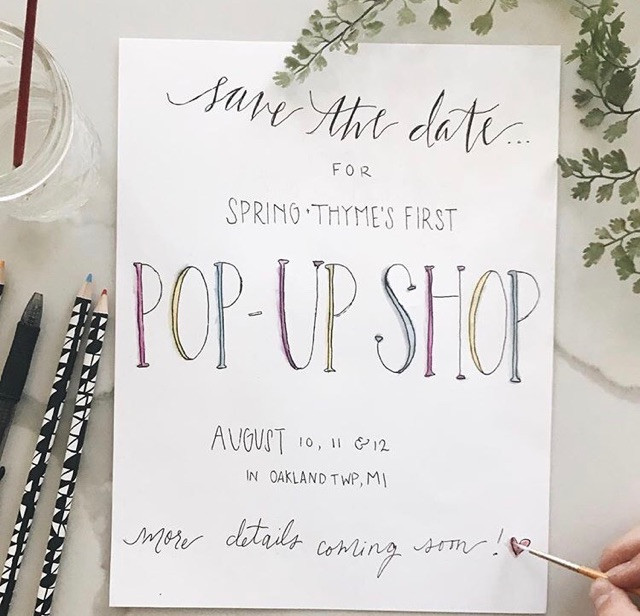 save the date...
FOR
SPRING·THYME'S FIRST
POP-UP SHOP
AUGUST 10, 11 & 12
IN OAKLAND TWP, MI
more details coming soon!